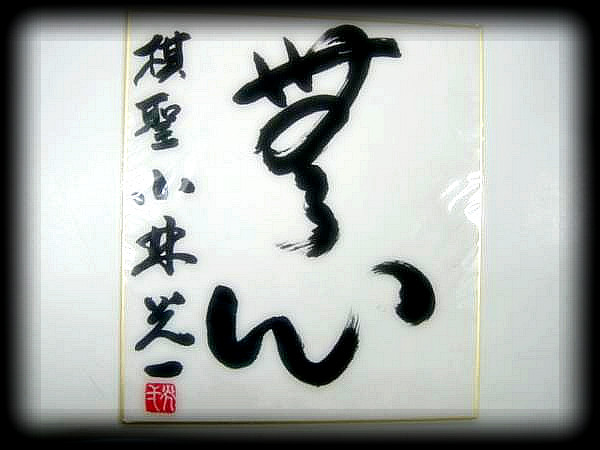 無心
棋聖 小林光一